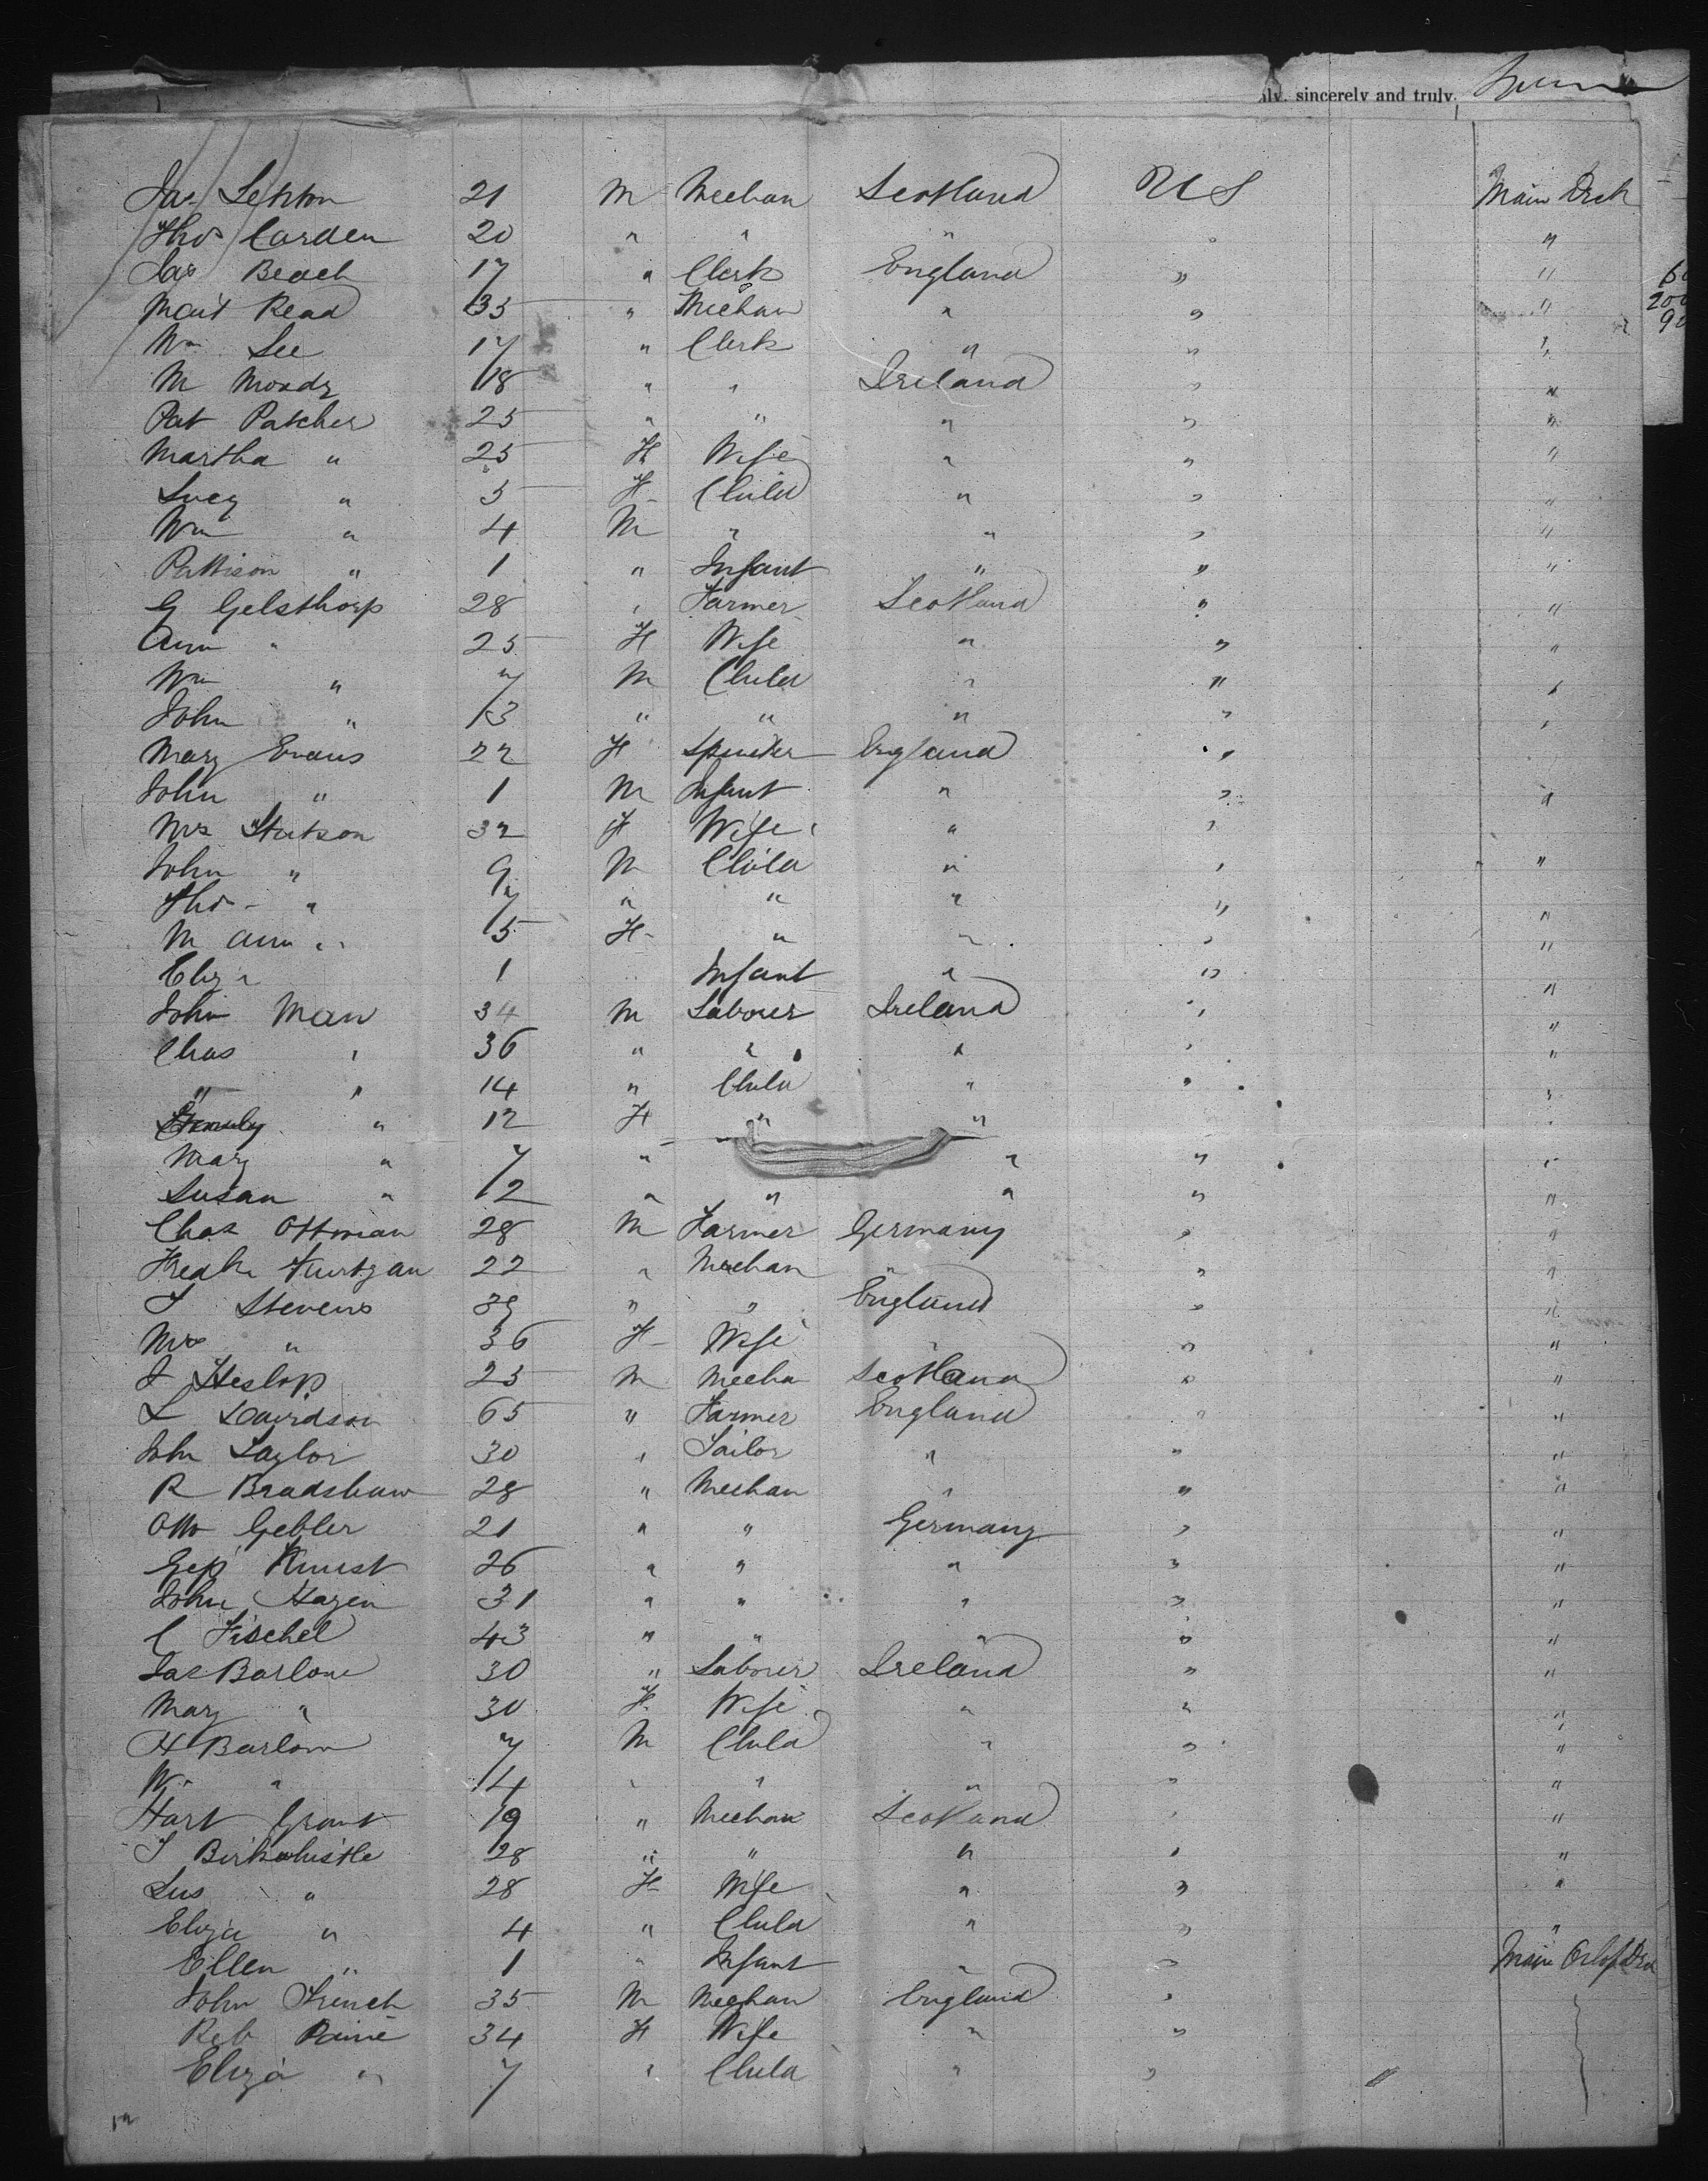 sincerely and truly.
Jas 21 M Mechan Scotland U S Main Deck
Thos Carden 20 " " " " "
Jas Beach 17 " Clerk England " "
Read 35 " Mechan " " "
Wm Lee 17 " Clerk " " "
M Moody 18 " " Ireland " "
Pat Patcher 25 " " " " "
Martha " 25 F Wife " " "
Lucy " 5 F Child " " "
Wm " 4 M " " " "
Pattison " 1 " Infant " " "
G Gelsthorp 28 " Farmer Scotland " "
Ann " 25 F Wife " " "
Wm " 7 M Child " " "
John " 3 " " " " "
Mary Evans 22 F Spinster England "
John " 1 M Infant " " "
Mrs Statson 32 F Wife " "
John " 9 M Child " " "
Thos " 7 " " " " "
M Ann " 5 F " " " "
Eliz " 1 Infant " " "
John Man 34 M Laborer Ireland " "
Chas " 36 " " " " "
" " 14 " Child " " "
" 12 F " " "
Mary " 7 " " " "
Susan " 2 " " " " "
Chas Ottman 28 M Farmer Germany " "
22 " Mechan " " "
Stevens 39 " " England " "
Mrs " 36 F Wife " " "
J Heslop 25 M Mecha Scotland " "
L Davidson 65 " Farmer England " "
John Taylor 30 " Tailor " " "
R Bradshaw 28 " Mechan " " "
Otto Gebler 21 " " Germany " "
Kunst 26 " " " " "
John Hagen 31 " " " " "
C Fischel 43 " " " " "
Jas Barlow 30 " Laborer Ireland " "
Mary " 30 F Wife " " "
H Barlow 7 M Child " " "
W " 4 " " " " "
Hart Grant 19 " Mechan Scotland " "
Birkwhistle 28 " " " " "
" 28 F Wife " " "
Eliza " 4 " Child " " "
Ellen " 1 " Infant " " Main Orlop Deck
John French 35 M Mechan England "
Reb Paine 34 F Wife " "
Eliza " 7 " Child " "